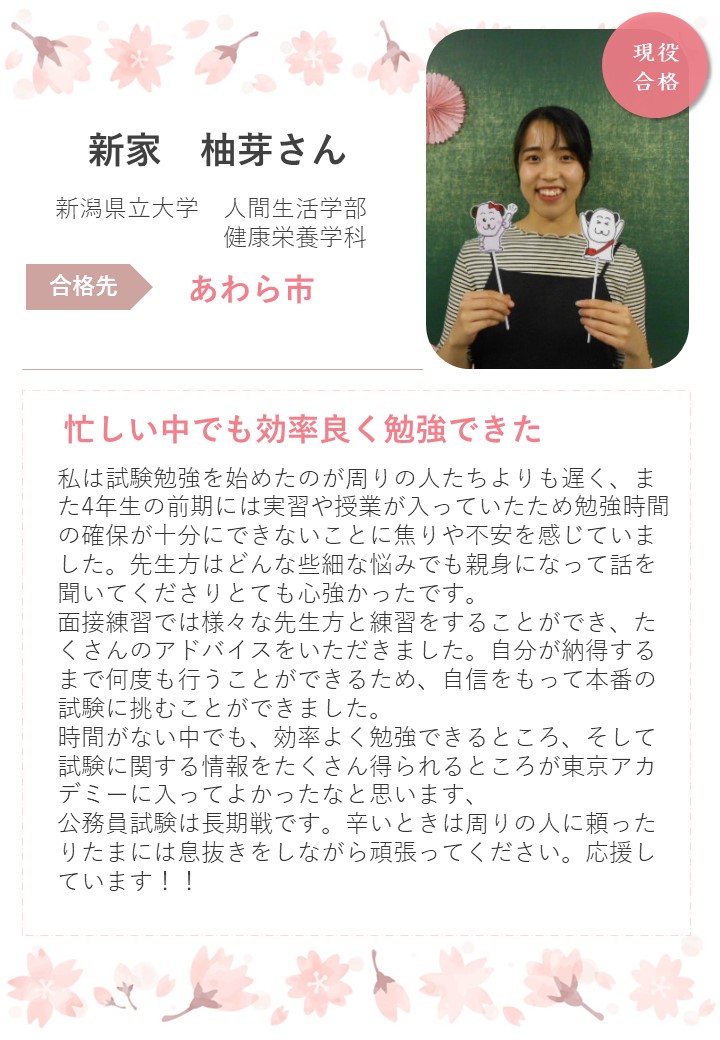 現役
合格
新家　柚芽さん
新潟県立大学　人間生活学部
健康栄養学科
合格先
あわら市
忙しい中でも効率良く勉強できた
私は試験勉強を始めたのが周りの人たちよりも遅く、ま
た4年生の前期には実習や授業が入っていたため勉強時間
の確保が十分にできないことに焦りや不安を感じていま
した。先生方はどんな些細な悩みでも親身になって話を
聞いてくださりとても心強かったです。
面接練習では様々な先生方と練習をすることができ、た
くさんのアドバイスをいただきました。自分が納得する
まで何度も行うことができるため、自信をもって本番の
試験に挑むことができました。
時間がない中でも、効率よく勉強できるところ、そして
試験に関する情報をたくさん得られるところが東京アカ
デミーに入ってよかったなと思います、
公務員試験は長期戦です。辛いときは周りの人に頼った
りたまには息抜きをしながら頑張ってください。応援し
ています！！